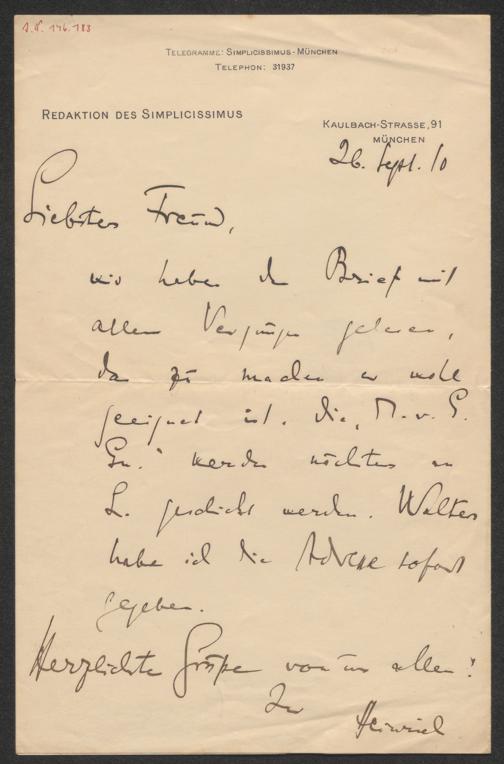 I.N. 146.183
TELEGRAMME: SIMPLICISSIMUS-MÜNCHEN
TELEPHON: 31937
REDAKTION DES SIMPLICISSIMUS
KAULBACH-STRASSE, 91
MÜNCHEN
26. Sept. 10
Liebster Freund,
wir haben den Brief mit
allem Vergnügen gelesen,
das zu machen er wohl
geeignet ist. Die „M. v. G.
werden nächstens an
L. geschickt werden. Walter
habe ich die Adresse sofort
gegeben.
Herzlichste Grüße von uns allen!
Ihr
Heinrich